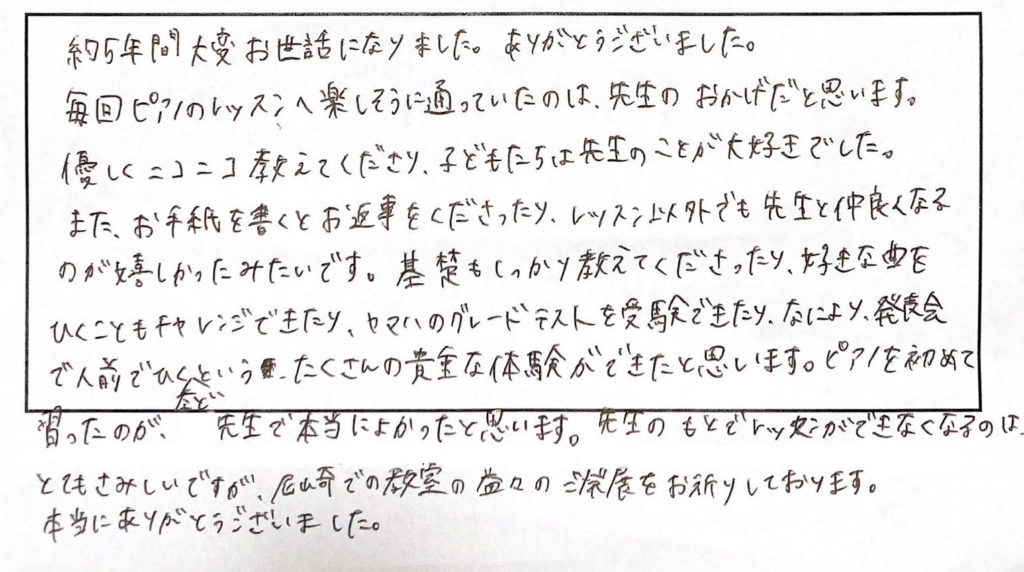 約5年間大変お世話になりました。ありがとうございました。
毎回ピアノのレッスンへ楽しそうに通っていたのは、先生のおかげだと思います。
優しくニコニコ教えてくださり、子どもたちは先生のことが大好きでした。
また、お手紙を書くとお返事をくださったり、レッスン以外でも先生と仲良くなる
のが嬉しかったみたいです。基礎もしっかり教えてくださったり、好きな曲を
ひくこともチャレンジできたり、ヤマハのグレードテストを受験できたり、なにより、発表会
で人前でひくという、たくさんの貴重な体験ができたと思います。ピアノを初めて
など
習ったのが、先生で本当によかったと思います。先生のもとでレッスンができなくなるのは、
とてもさみしいですが、尼崎での教室の益々のご発展をお祈りしております。
本当にありがとうございました。